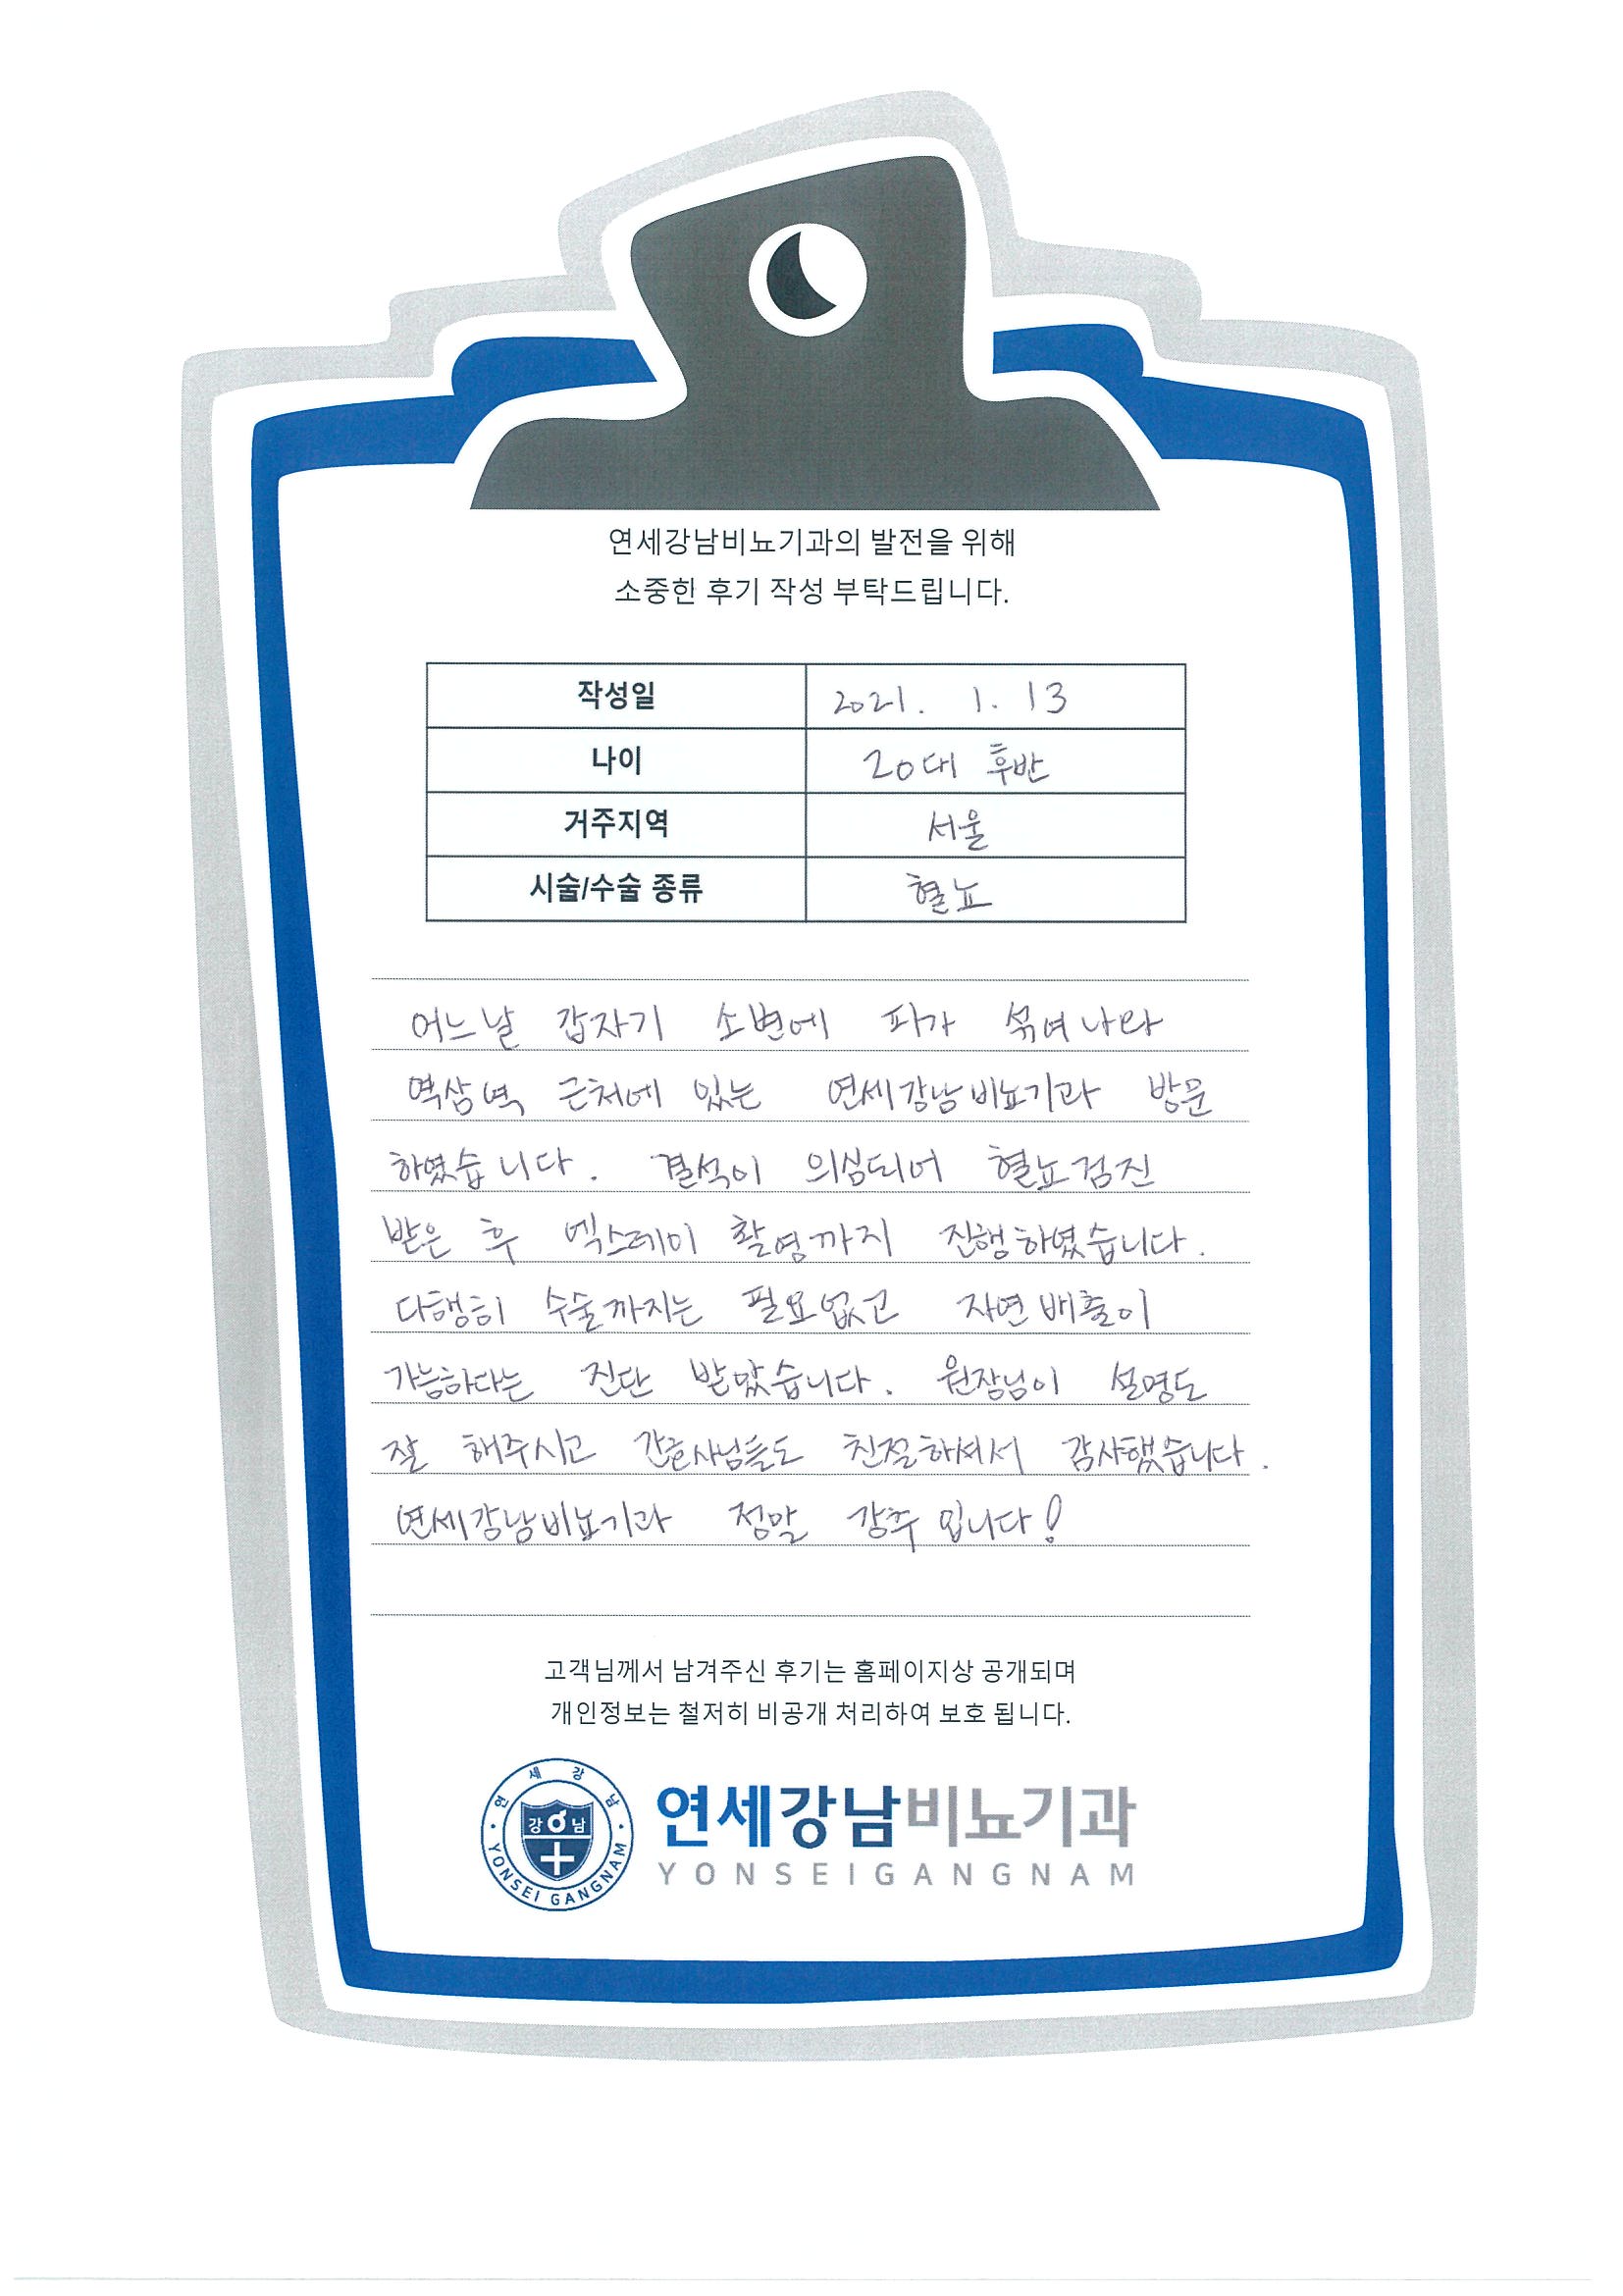 연세강남비뇨기과의 발전을 위해
소중한 후기 작성 부탁드립니다.
작성일 2021. 1. 13
나이 20대 후반
거주지역 서울
시술/수술 종류 혈뇨
어느날 갑자기 소변에 피가 섞여나와
역삼역 근처에 있는 연세강남비뇨기과 방문
하였습니다. 결석이 의심되어 혈뇨검진
받은 후 엑스레이 촬영까지 진행하였습니다.
다행히 수술까지는 필요없고 자연배출이
가능하다는 진단 받았습니다. 원장님이 설명도
잘 해주시고 간호사님들도 친절하셔서 감사했습니다.
연세강남비뇨기과 정말 강추입니다!
고객님께서 남겨주신 후기는 홈페이지상 공개되며
개인정보는 철저히 비공개 처리하여 보호 됩니다.
연세강남
강남
YONSEI GANGNAM
연세강남비뇨기과
YONSEIGANGNAM